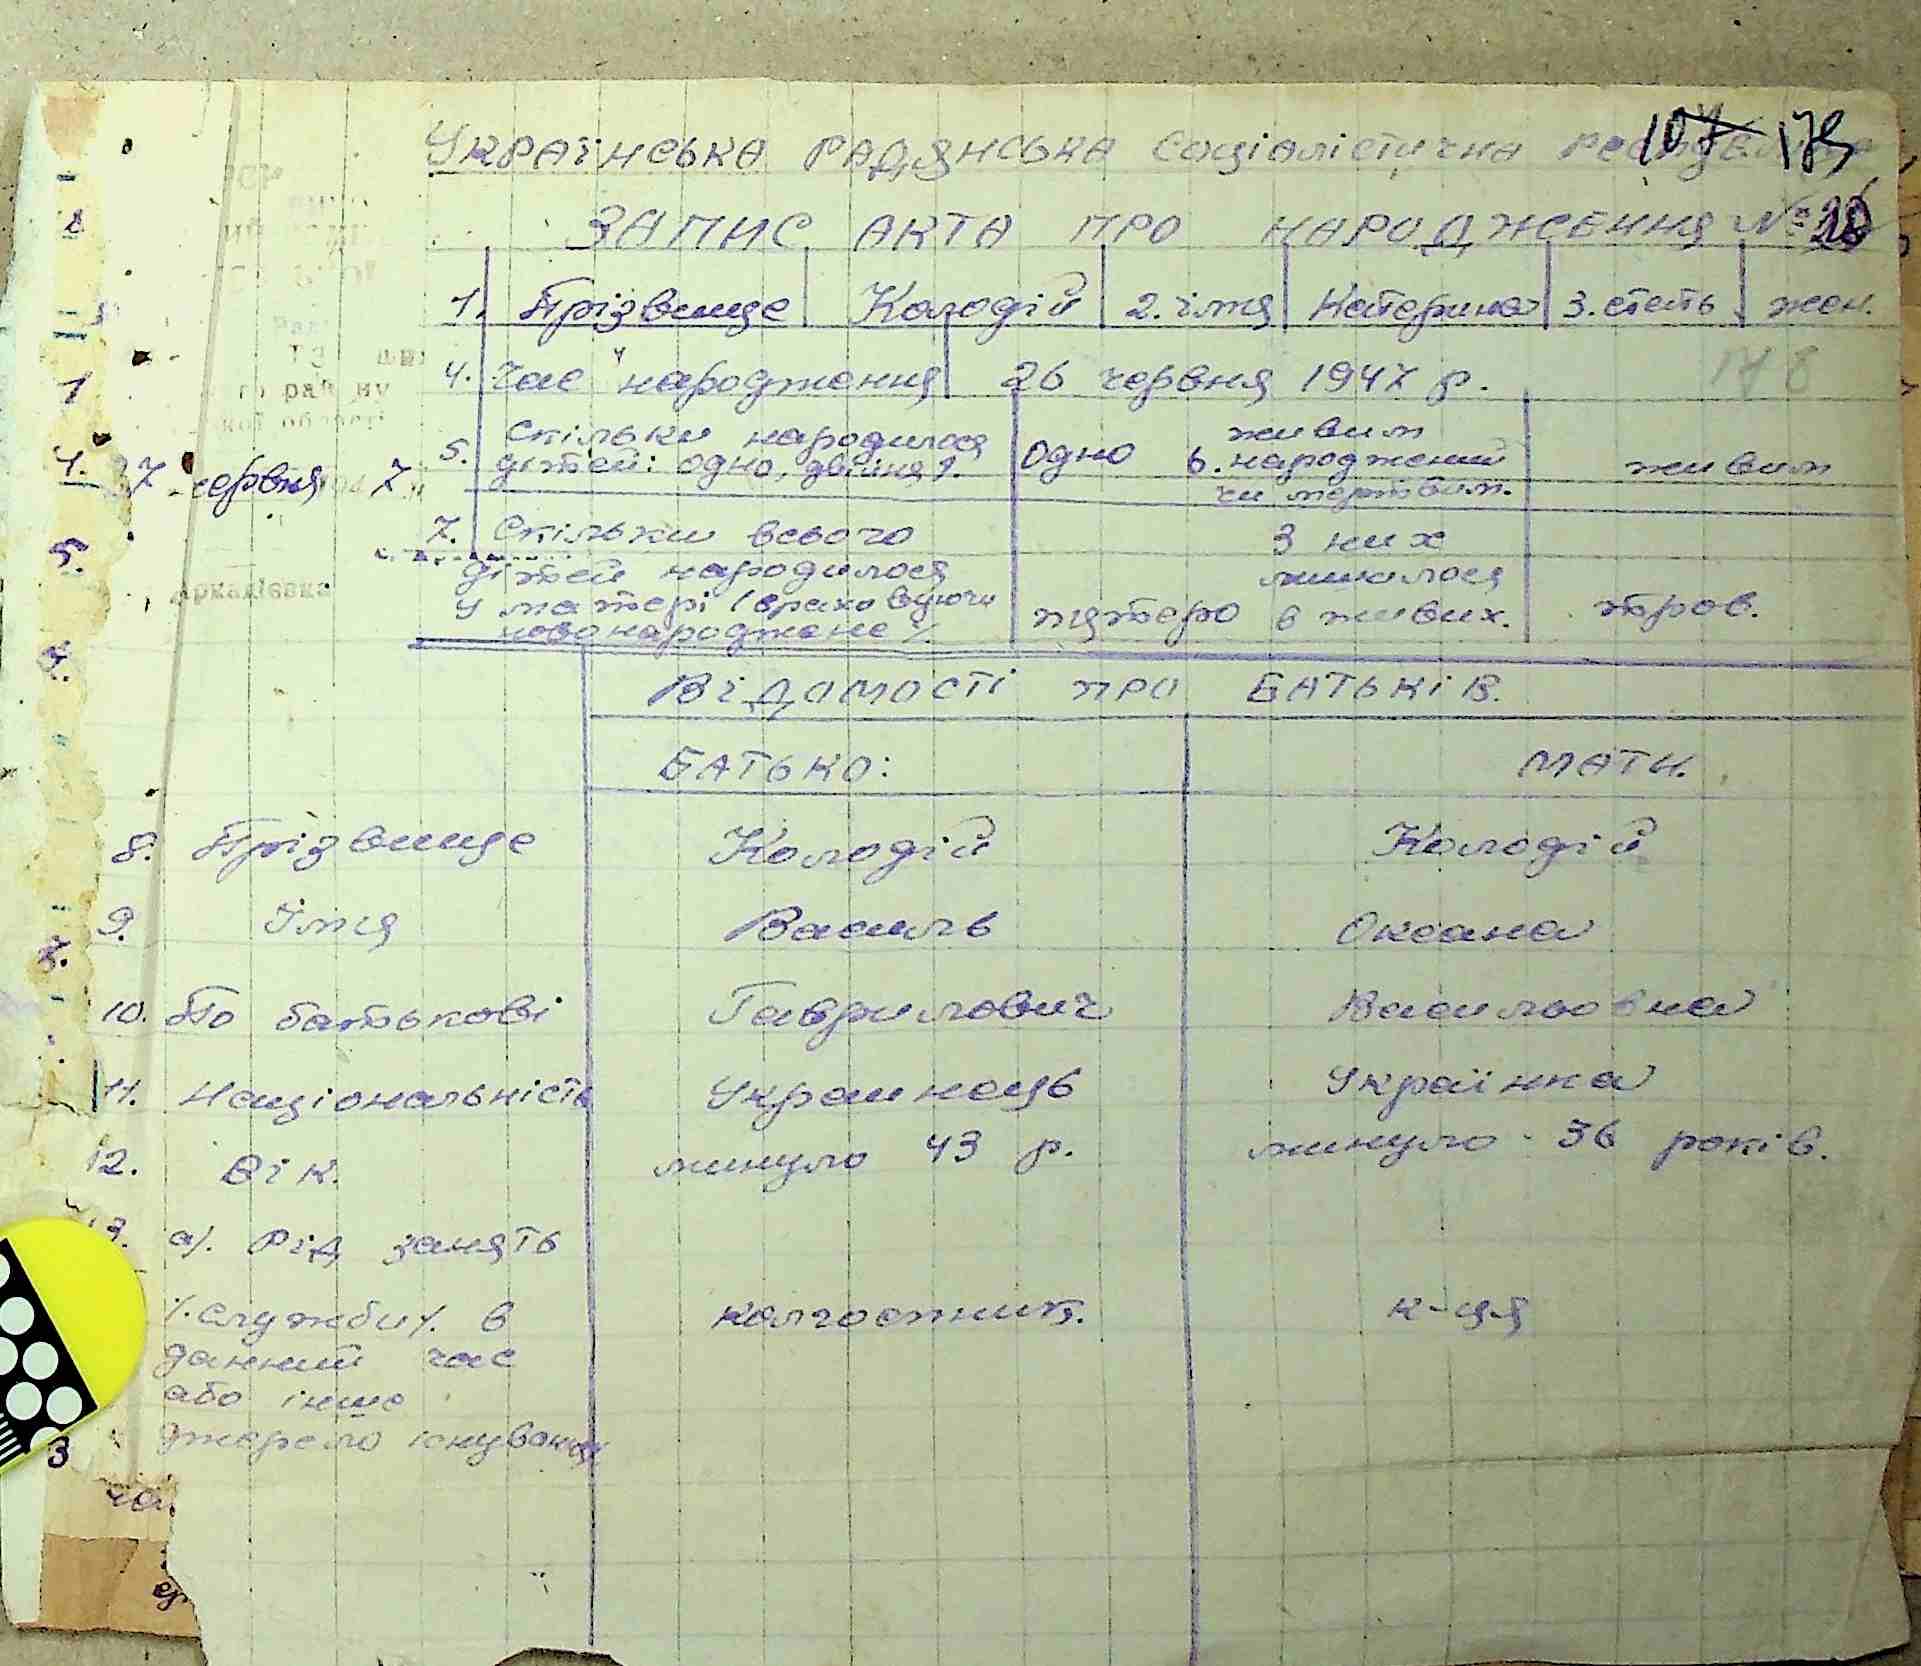 107 179
Українська Радянська Соціалістична
Запис акта про народження №
1. Прізвище Колодій 2. імя Катерина 3. стать жен.
4. Час народження 26 червня 1947 р. 178
5. Скільки народилося дітей: одно, двійня. одно 6. живим народжений чи мертвим. живим
7 червня 7
7. Скільки всього дітей народилося у матері /враховуючи новонароджене/ пятеро З них лишилося в живих. тров.
го рай ну
кої області
Аркадіевка
Відомості про батьків.
Батько: Мати.
8. Прізвище Колодій Колодій
9. Імя Василь Оксана
10. По батькові Гаврилович Васильовна
11. Національність Украинець Українка
12. Вік. минуло 43 р. минуло 36 років.
а/. Рід занять
/.служби/. в колгоспник. к-ця
данний час
або інше
джерело існування
3